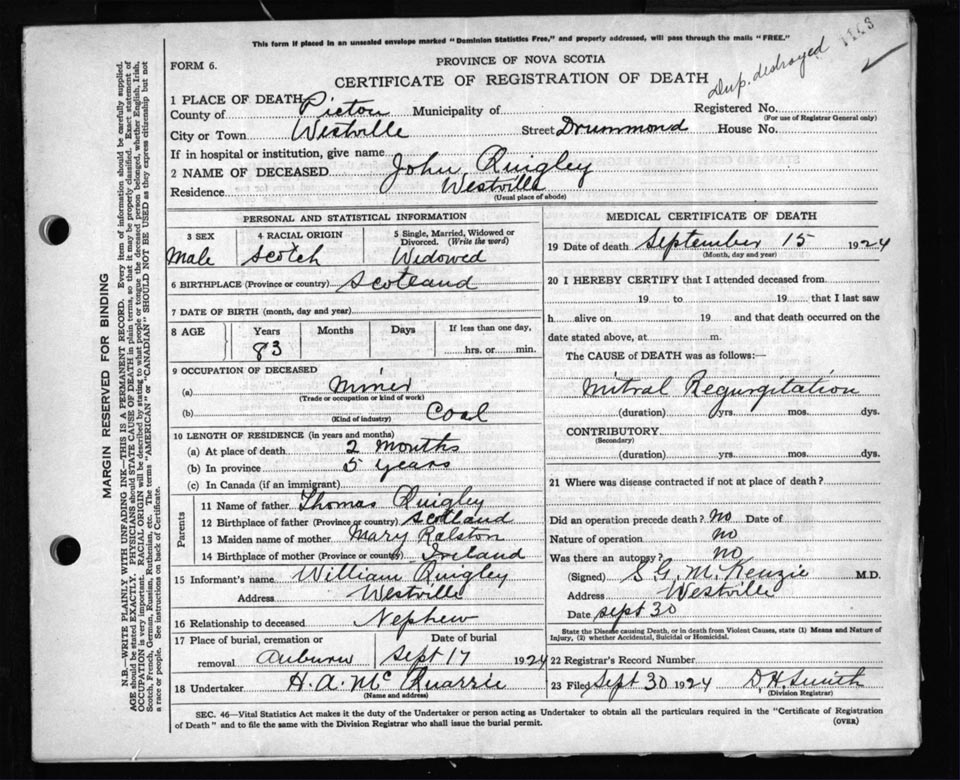 This form if placed in an unsealed envelope marked "Dominion Statistics Free," and properly addressed, will pass through the mails "FREE."
1163
Dup. destroyed
FORM 6.
PROVINCE OF NOVA SCOTIA
CERTIFICATE OF REGISTRATION OF DEATH
1 PLACE OF DEATH
County of Pictou Municipality of Registered No.
(For use of Registrar General only)
City or Town Westville Street Drummond House No.
If in hospital or institution, give name
2 NAME OF DECEASED John Quigley
Residence Westville
(Usual place of abode)
PERSONAL AND STATISTICAL INFORMATION
3 SEX 4 RACIAL ORIGIN 5 Single, Married, Widowed or Divorced. (Write the word)
Male Scotch Widowed
6 BIRTHPLACE (Province or country) Scotland
7 DATE OF BIRTH (month, day and year)
8 AGE Years Months Days If less than one day,
83 hrs. or min.
9 OCCUPATION OF DECEASED
(a) Miner
(Trade or occupation or kind of work)
(b) Coal
(Kind of industry)
10 LENGTH OF RESIDENCE (in years and months)
(a) At place of death 2 months
(b) In province 5 years
(c) In Canada (if an immigrant)
Parents
11 Name of father Thomas Quigley
12 Birthplace of father (Province or country) Scotland
13 Maiden name of mother Mary Ralston
14 Birthplace of mother (Province or country) Ireland
15 Informant's name William Quigley
Address Westville
16 Relationship to deceased Nephew
17 Place of burial, cremation or removal Auburn
Date of burial
Sept 17 1924
18 Undertaker H. A. McQuarrie
(Name and address)
MEDICAL CERTIFICATE OF DEATH
19 Date of death September 15 1924
(Month, day and year)
20 I HEREBY CERTIFY that I attended deceased from
19 to 19 that I last saw
h alive on 19 and that death occurred on the
date stated above, at m.
The CAUSE of DEATH was as follows:—
Mitral Regurgitation
(duration) yrs. mos. dys.
CONTRIBUTORY
(Secondary)
(duration) yrs. mos. dys.
21 Where was disease contracted if not at place of death?
Did an operation precede death? No Date of
Nature of operation no
Was there an autopsy? no
(Signed) S G McKenzie M.D.
Address Westville
Date Sept 30
State the Disease causing Death, or in death from Violent Causes, state (1) Means and Nature of
Injury, (2) whether Accidental, Suicidal or Homicidal.
22 Registrar's Record Number
23 Filed Sept 30 1924 D. H. Smith
(Division Registrar)
SEC. 46—Vital Statistics Act makes it the duty of the Undertaker or person acting as Undertaker to obtain all the particulars required in the "Certificate of Registration
of Death" and to file the same with the Division Registrar who shall issue the burial permit.
(OVER)
MARGIN RESERVED FOR BINDING
N.B.—WRITE PLAINLY WITH UNFADING INK—THIS IS A PERMANENT RECORD. Every item of information should be carefully supplied.
AGE should be stated EXACTLY. PHYSICIANS should STATE CAUSE OF DEATH in plain terms, so that it may be properly classified. Exact statement of
OCCUPATION is very important. RACIAL ORIGIN will be described by stating to what people or tongue the deceased person belonged, whether English, Irish,
Scotch, French, German, Russian, Ruthenian, etc. The terms "AMERICAN" or "CANADIAN" SHOULD NOT BE USED as they express citizenship but not
a race or people. See instructions on back of Certificate.